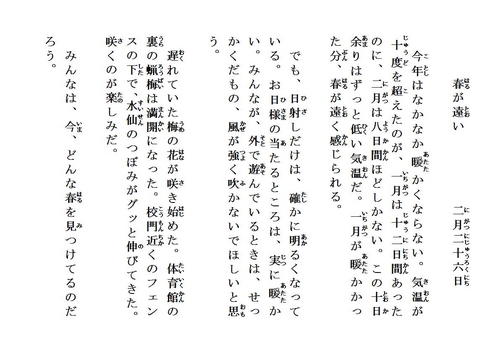 春が遠い　二月二十六日
今年はなかなか暖かくならない。気温が
十度を超えたのが、一月は十二日間あった
のに、二月は八日間ほどしかない。この十日
余りはずっと低い気温だ。一月が暖かかっ
た分、春が遠く感じられる。
でも、日射しだけは、確かに明るくなって
いる。お日様の当たるところは、実に暖か
い。みんなが、外で遊んでいるときは、せっ
かくだもの、風が強く吹かないでほしいと思
う。
遅れていた梅の花が咲き始めた。体育館の
裏の蝋梅は満開になった。校門近くのフェン
スの下で、水仙のつぼみがグッと伸びてきた。
咲くのが楽しみだ。
みんなは、今、どんな春を見つけてるのだ
ろう。